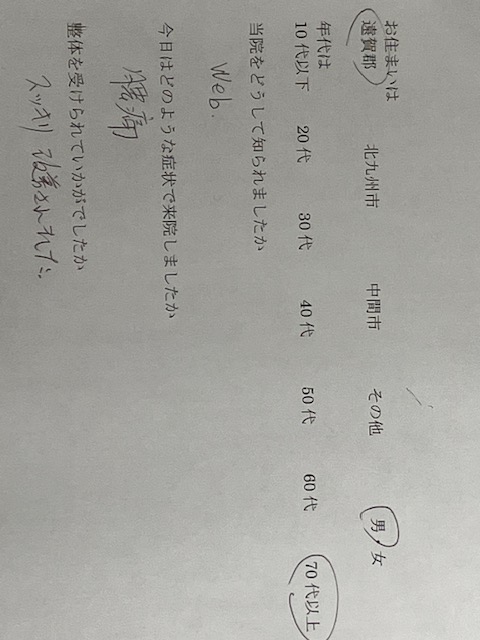 お住まいは
遠賀郡 北九州市 中間市 その他 男・女
年代は
10代以下 20代 30代 40代 50代 60代 70代以上
当院をどうして知られましたか
Web.
今日はどのような症状で来院しましたか
腰痛
整体を受けられていかがでしたか
スッキリ 改善されました。